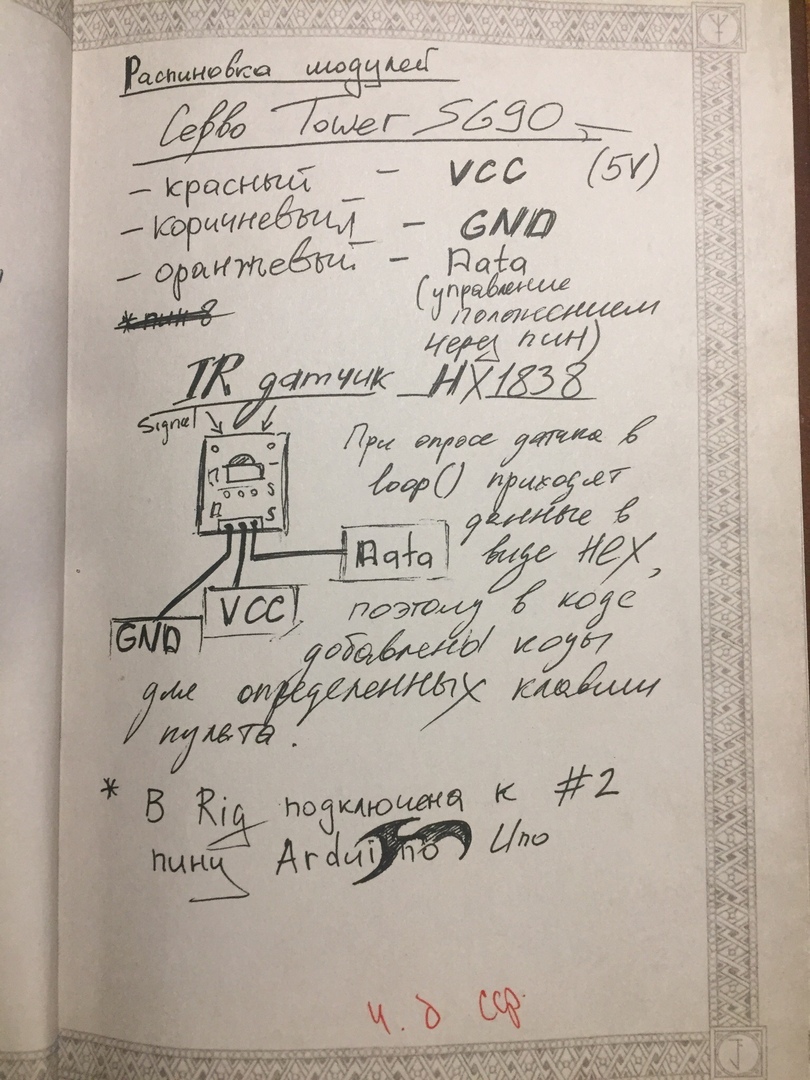 Распиновка модулей
Серво Tower SG90
– красный – VCC (5V)
– коричневый – GND
– оранжевый – Data
(управление
положением
через пин)
* пин 8
IR датчик HX1838
Signal
При опросе датчика в
loop() приходят
данные в
виде HEX,
поэтому в коде
добавлены коды
для определенных клавиш
пульта.
–
S
S
Data
VCC
GND
* В Rig подключена к #2
пину Arduino Uno